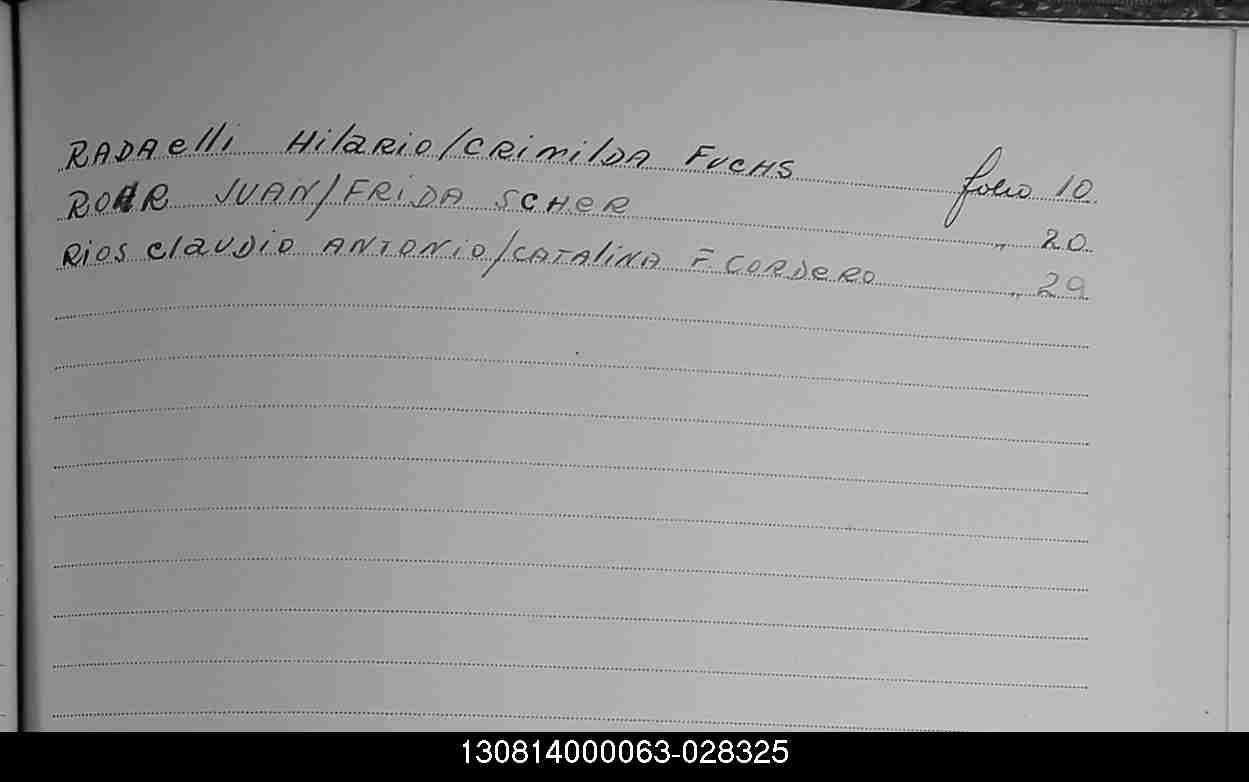 RADAelli Hilario/CRIMILDA FUCHS folio 10
ROHR JUAN/FRIDA SCHER " 20
Rios Claudio ANTONIO/CATALINA F. CORDERO " 29
130814000063-028325